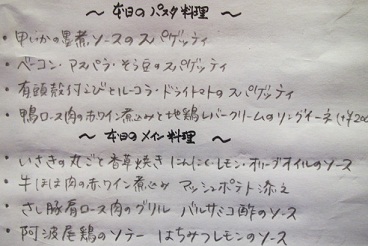 ～ 本日のパスタ料理 ～
・甲いかの墨煮ソースのスパゲッティ
・ベーコン・アスパラ・そら豆のスパゲッティ
・有頭殻付えびとルーコラ・ドライトマトのスパゲッティ
・鴨ロース肉の赤ワイン煮込みと地鶏レバークリームのリングイーネ(+¥200
～ 本日のメイン料理 ～
・いさきの丸ごと香草焼き にんにく・レモン・オリーブオイルのソース
・牛ほほ肉の赤ワイン煮込み マッシュポテト添え
・さし豚肩ロース肉のグリル バルサミコ酢のソース
・阿波尾鶏のソテー はちみつレモンのソース